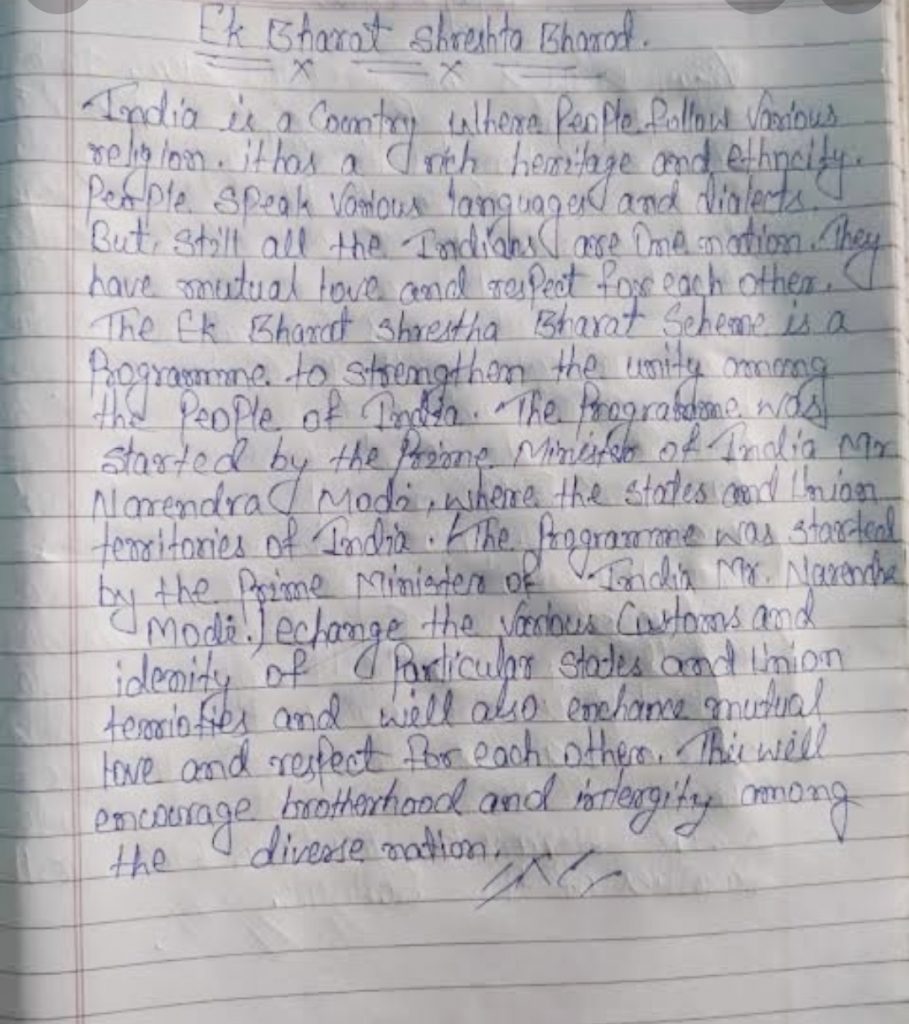 Ek Bharat Shreshta Bharat.
India is a Country Where People follow Various
religion. it has a rich heritage and ethncity.
People speak Various languages and dialects.
But, Still all the Indians are One nation. They
have mutual love and respect for each other.
The Ek Bharat Shrestha Bharat Scheme is a
Programme to strengthen the unity among
the People of India. The Programme was
started by the Prime Minister of India Mr
Narendra Modi, where the states and Union
territories of India. The Programme was started
by the Prime Minister of India Mr. Narendra
Modi.) echange the various Customs and
idenity of Particular States and Union
terriofies and will also enchance mutual
love and respect for each other. This will
encourage brotherhood and intergity among
the diverse nation.